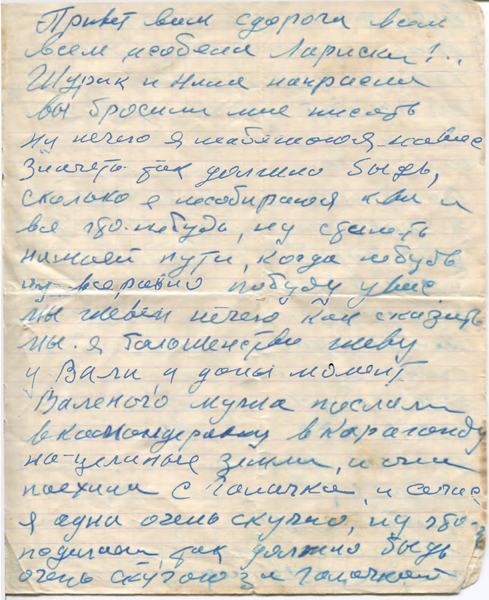 Привет вам сдороги всем
всем особена Лариски!..
Шурик и Нина напрасна
вы бросили мне писать
ну нечего я необежаюся навас
Значеть так должно быдь,
сколько я несобираюся к вам и
все што-небудь, ну
пути, когда небудь
ну всеравно побуду увас
мы живем нечего как сказать
мы. я болшенство живу
у Вали и доны момент
Валеного мужа послали
в командеравку в Караганду
на-целиные земли, и они
поехили с Галачкай, и сечас
я одна очень скучно, ну што-
поделаеш, так должно быдь
очень скучаю за Галачкай